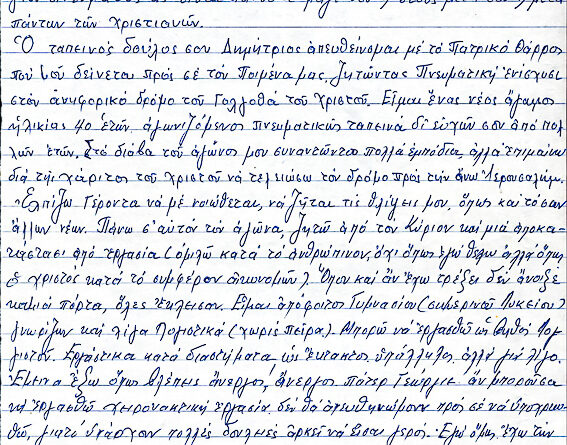 πάντων τῶν Χριστιανῶν.
Ὁ ταπεινός δοῦλος σου Δημήτριος ἀπευθύνομαι μέ τό Πατρικό θάρρος
πού σοῦ δείνεται πρός σέ τόν Ποιμένα μας, ζητώντας Πνευματική ἐνίσχυσι
στόν ἀνηφορικό δρόμο τοῦ Γολγοθᾶ τοῦ Χριστοῦ. Εἶμαι ἕνας νέος ἄγαμος
ἡλικίας 40 ἐτῶν ἀγωνιζόμενος πνευματικῶς ταπεινά δι' εὐχῶν σου ἀπό πολ
λῶν ἐτῶν. Στό διάβα τοῦ ἀγῶνος μου συναντῶνται πολλά ἐμπόδια, ἀλλά ἐπιμαίνω
διά τῆς χάριτος τοῦ Χριστοῦ νά τελειώσω τόν δρόμο πρός τήν ἄνω Ἱερουσαλήμ.
Ἐλπίζω Γέροντα νά μέ νοιώθεται, νά ζῆται τίς θλίψεις μου, ὅπως καί τόσων
ἄλλων νέων. Πάνω σ' αὐτόν τόν ἀγῶνα, ζητῶ ἀπό τόν Κύριον καί μιά ἀποκα-
τάστασι ἀπό ἐργασία (ὁμιλῶ κατά τό ἀνθρώπινον, ὄχι ὅπως ἐγώ θέλω ἀλλά ὅπως
ὁ Χριστός κατά τό συμφέρον οἰκονομῶν). Ὅπου καί ἄν ἔχω τρέξει δέν ἄνοιξε
καμιά πόρτα, ὅλες ἔκλεισαν. Εἶμαι ἀπόφοιτος Γυμνασίου (σημερινοῦ Λυκείου)
γνωρίζων καί λίγα Λογιστικά (χωρίς πεῖρα). Μπορῶ νά ἐργασθῶ ὡς βοηθός λογ
ιστοῦ. Ἐργάστικα κατά διαστήματα ὡς ἔκτακτος ὑπάλληλος ἀλλά γιά λίγο.
Ἔμεινα ἔξω ὅπως βλέπεις ἄνεργος, ἄνεργος πάτερ Γεώργιε. ἄν μποροῦσα
νά ἐργασθῶ χειρονακτική ἐργασία, δέν θά ἀπευθηνώμουν πρός σέ νά ὑποχρεω-
θῶ, γιατί ὑπάρχουν πολλές δουλειές ἀρκεῖ νά εἶσαι γερός. Ἐγώ ὅμως ἔχω τήν